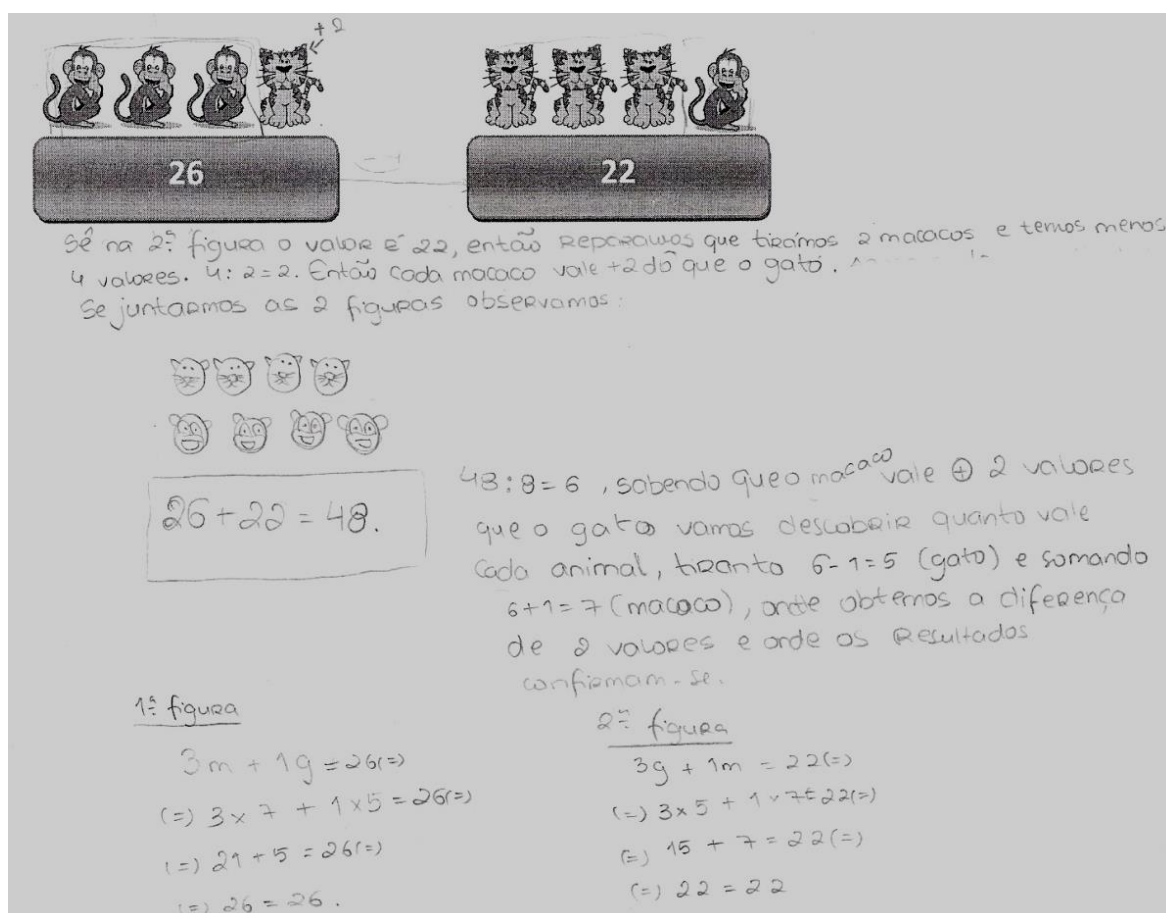 +2
26
22
Sê na 2ª figura o valor é 22, então reparamos que tirámos 2 macacos e temos menos
4 valores. 4:2=2. Então cada macaco vale +2 dô que o gato.
Se juntarmos as 2 figuras observamos:
26+22=48.
48:8=6, sabendo que o macaco vale ⊕ 2 valores
que o gato vamos descobrir quanto vale
cada animal, tiranto 6-1=5 (gato) e somando
6+1=7 (macaco), onde obtemos a diferença
de 2 valores e onde os resultados
confirmam-se.
1ª figura
3m + 1g = 26(=)
(=) 3x7 + 1x5 = 26(=)
(=) 21+5 = 26(=)
(=) 26 = 26.
2ª figura
3g + 1m = 22(=)
(=) 3x5 + 1x7=22(=)
(=) 15 + 7 = 22(=)
(=) 22 = 22